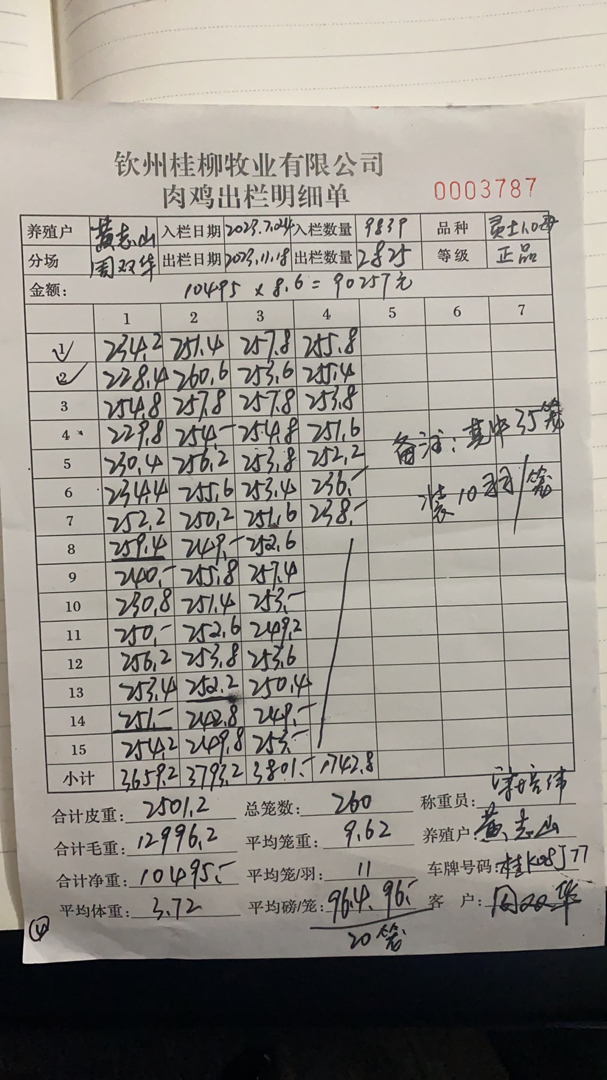 钦州桂柳牧业有限公司
肉鸡出栏明细单 0003787
养殖户 黄志山 入栏日期 2023.7.24 入栏数量 9839 品种
分场 周双华 出栏日期 2023.11.18 出栏数量 2825 等级 正品
金额: 10495 x 8.6 = 90257元
1 2 3 4 5 6 7
1 234.2 251.4 257.8 255.8
2 228.4 260.6 253.6 255.4
3 254.8 257.8 257.8 253.8
4 229.8 254.- 254.8 251.6
5 230.4 256.2 253.8 252.2
6 234.4 255.6 253.4 236.-
7 252.2 250.2 251.6 238.-
备注: 其中35笼
装10羽/笼
8 259.4 249.- 252.6
9 240.- 255.8 257.4
10 230.8 251.4 253.-
11 250.- 252.6 249.2
12 256.2 253.8 253.6
13 253.4 252.2 250.4
14 251.- 242.8 249.-
15 254.2 249.8 253.-
小计 3659.2 3793.2 3801.- 1742.8
合计皮重: 2501.2 总笼数: 260 称重员:
合计毛重: 12996.2 平均笼重: 9.62 养殖户: 黄志山
合计净重: 10495.- 平均笼/羽: 11 车牌号码: 桂K08J77
平均体重: 3.72 平均磅/笼: 96.4 96.- 客 户: 周双华
20笼